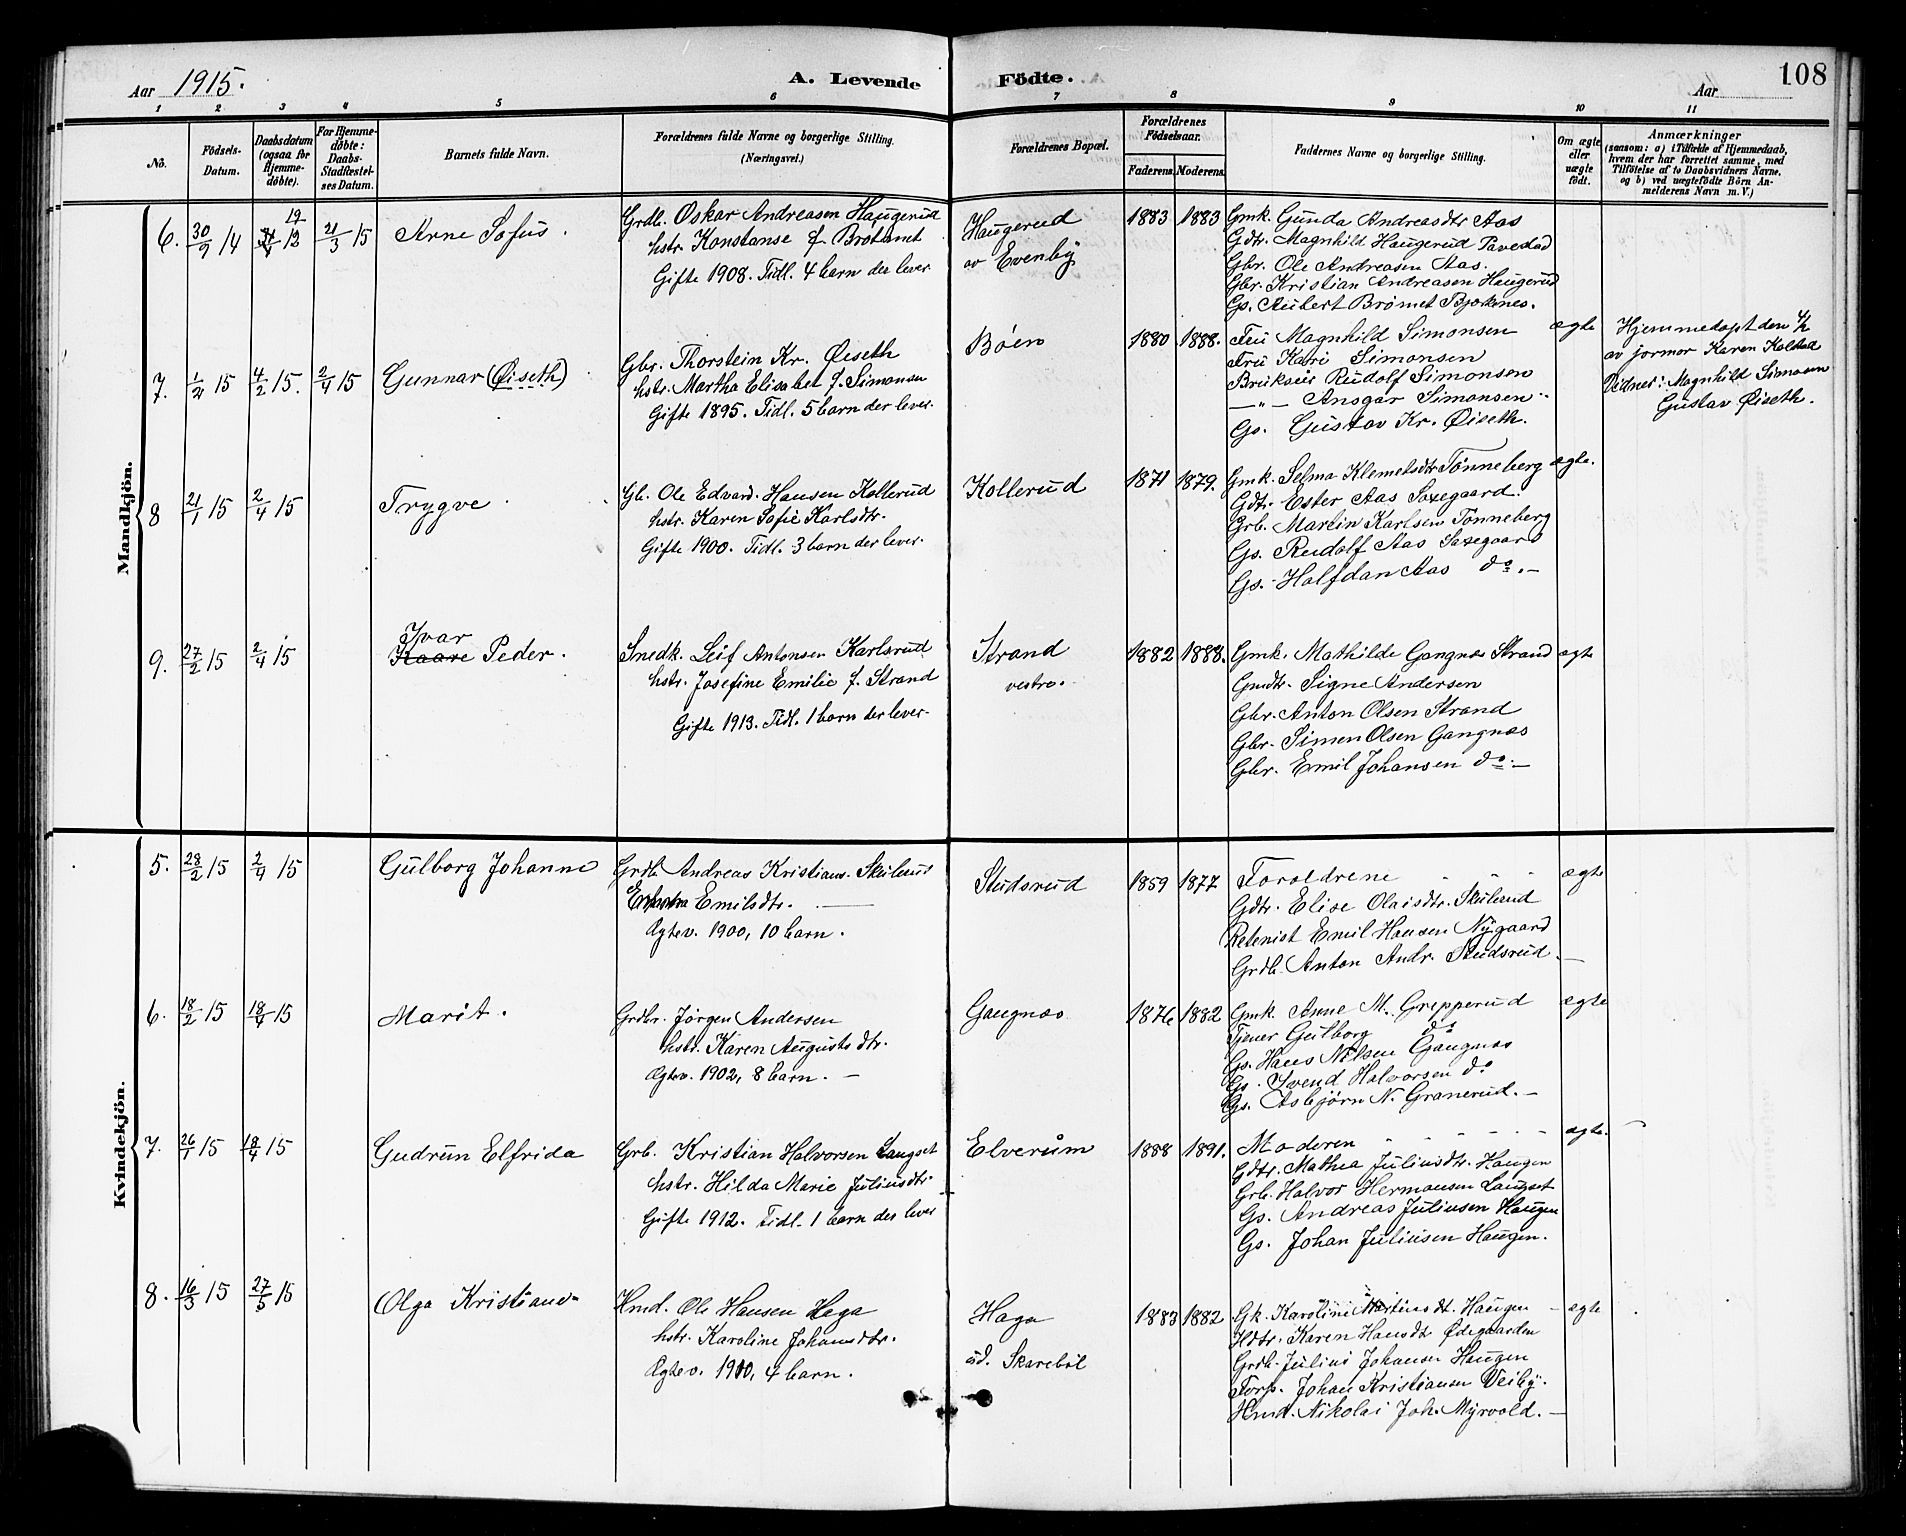 Aar 1915.
A. Levende Födte.
Aar
108
1 2 3 4 5 6 7 8 9 10 11
Nò.
Födsels-Datum.
Daabsdatum (ogsaa for Hjemme-döbte).
For Hjemme-döbte: Daabs-Stadfæstel-ses Datum.
Barnets fulde Navn.
Forældrenes fulde Navne og borgerlige Stilling. (Næringsvei.)
Forældrenes Bopæl.
Forældrenes Födselsaar.
Faderens Moderens
Faddernes Navne og borgerlige Stilling.
Om ægte eller uægte födt.
Anmærkninger
(saasom: a) i Tilfælde af Hjemmedaab, hvem der har forrettet samme, med Tilföielse af to Daabsvidners Navne, og b) ved uægtefödte Börn An-melderens Navn m. V.)
Mandkjön.
6. 30/9 14 12 21/3 15 Arne Sofus.
Grdb. Oskar Andreasen Haugerud
hstr. Konstanse f. Brotumet
Gifte 1908. Tidl. 4 barn der lever
Haugerud
av Evenby
1883 1883
Gmk. Gunda Andreasdtr Aas
Gdtr. Magnhild Haugerud
Gbr. Ole Andreasen Aas.
Gbr. Kristian Andreasen Haugerud
Gs. Aubert Brømet
7. 1/2 15 4/2 15. 2/4 15 Gunnar (Øiseth)
Gbr. Thorstein Kr. Øiseth
hstr. Martha Elisabet f. Simonsen
Gifte 1895. Tidl. 5 barn der lever.
Bøen
1880 1888.
Fru Magnhild Simonsen
Fru Kari Simonsen
Brukseier Rudolf Simonsen
—"— Ansgar Simonsen
Gs. Gustav Kr. Øiseth.
ægte
Hjemmedøpt den 4/2
av jormor Karen Kolstad
Vidner: Magnhild Simonsen
Gustav Øiseth.
8 21/1 15 2/4 15 Trygve
Gb. Ole Edvard Hansen Kollerud
hstr. Karen Sofie Karlsdtr.
Gifte 1900. Tidl. 3 barn der lever.
Kollerud
1871 1879.
Gmk. Selma Klemetsdtr Tønneberg
Gdtr. Ester Aas Saxegaard.
Grb. Martin Karlsen Tønneberg
Gs. Rudolf Aas Saxegaard
Gs. Halfdan Aas do.—
ægte.
9. 27/2 15 2/4 15 Ivar
Kaare Peder.
Snedk. Leif Antonsen Karlsrud
hstr. Josefine Emilie f. Strand
Gifte 1913. Tidl. 1 barn der lever
Strand
vestre.
1882 1888.
Gmk. Mathilde Gangnæs Strand
Gmdtr. Signe Andersen
Gbr. Anton Olsen Strand
Gbr. Simen Olsen Gangnæs
Gbr. Emil Johansen do—
ægte
Kvindekjön.
5. 28/2 15 2/4 15 Gulborg Johanne
Grdb. Andreas Kristians. Skilsrud
Emilsdtr.
Ægtev. 1900, 10 barn.
Studsrud
1859 1877
Foreldrene
Gdtr. Elise Olaisdtr. Skilsrud
Emil Hansen Nygaard
Grdb. Anton Andr. Studsrud.—
ægte
6. 18/2 15 18/4 15 Marit.
Grdbr. Jørgen Andersen
hstr. Karen Augustsdtr.
Ægtev. 1902, 8 barn. —
Gangnæs
1876 1882
Gmk. Anne M. Grepperud
Tjener Gulborg do
Gs. Hans Nilsen Gangnæs
Gs. Svend Halvorsen do
Gs. Asbjørn N. Granerud.—
ægte
7. 26/1 15 18/4 15 Gudrun Elfrida
Grb. Kristian Halvorsen Langset
hstr. Hilda Marie Juliusdtr.
Gifte 1912. Tidl. 1 barn der lever
Elverum
1888 1891.
Moderen
Gdtr. Mathea Juliusdtr. Haugen
Grb. Halvor Hermansen Langset
Gs. Andreas Juliusen Haugen
Gs. Johan Juliusen Haugen.
ægte.
8. 16/3 15 27/5 15 Olga Kristiane
Hmd. Ole Hansen Haga
hstr. Karoline Johansdtr.
Ægtev. 1910, 4 barn.
Haga
ud. Skarebøl
1883 1882
Gk. Karoline Martinsdt. Haugen
Hdtr. Karen Hansdt Ødegaarden
Grdb. Julius Johansen Haugen
Forp. Johan Kristiansen Veiby.
Hmd. Nikolai Joh. Myrvold.—
ægte